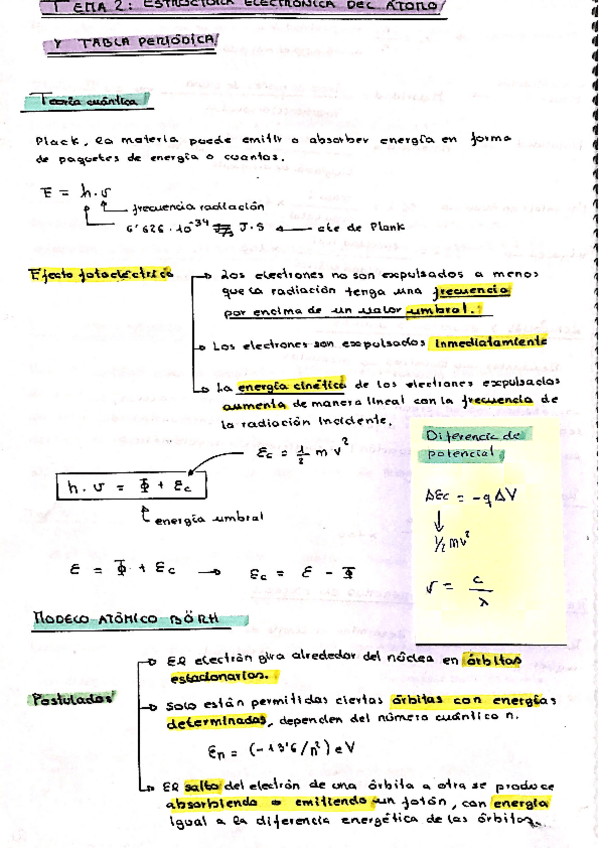 TEMA 2: ESTRUCTURA ELECTRÓNICA DEL ÁTOMO
Y TABLA PERIÓDICA
Teoría cuántica
Plack, la materia puede emitir o absorber energía en forma
de paquetes de energía o cuantos.
E = h.υ
frecuencia radiación
6'626.10^-34 J.S ← cte de Plank
Efecto fotoeléctrico
→ Los electrones no son expulsados a menos
que la radiación tenga una frecuencia
por encima de un valor umbral.
→ Los electrones son expulsados inmediatamente
→ La energía cinética de los electrones expulsados
aumenta de manera lineal con la frecuencia de
la radiación incidente.
Ec = 1/2 m v^2
h.υ = Φ + Ec
energía umbral
E = Φ + Ec → Ec = E - Φ
Diferencia de
potencial
ΔEc = -q ΔV
↓
1/2 mv^2
υ = c/λ
MODELO ATÓMICO BÖRH
Postulados
→ El electrón gira alrededor del núcleo en órbitas
estacionarias.
→ Solo están permitidas ciertas órbitas con energías
determinadas, dependen del número cuántico n.
En = (-13'6/n^2) eV
→ El salto del electrón de una órbita a otra se produce
absorbiendo o emitiendo un fotón, con energía
igual a la diferencia energética de las órbitas.